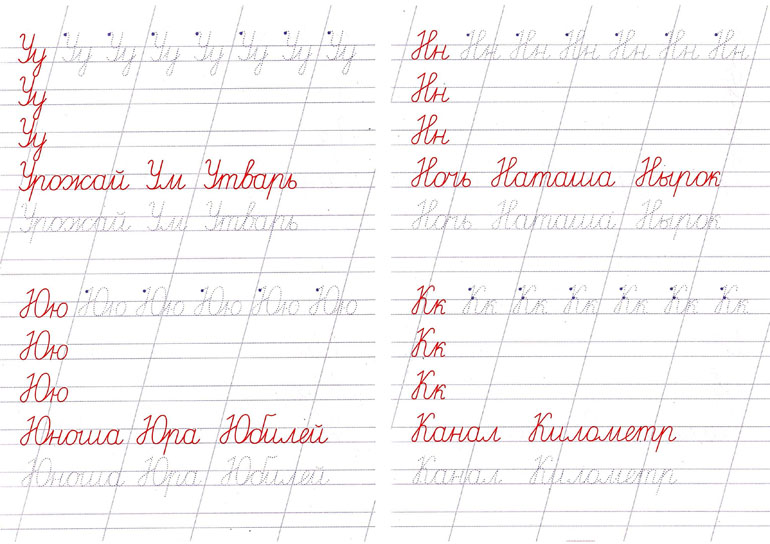 Уу Уу Уу Уу Уу Уу Уу Уу
Уу
Уу
Урожай Ум Утварь
Урожай Ум Утварь
Юю Юю Юю Юю Юю Юю
Юю
Юю
Юноша Юра Юбилей
Юноша Юра Юбилей
Нн Нн Нн Нн Нн Нн Нн
Нн
Нн
Ночь Наташа Нырок
Ночь Наташа Нырок
Кк Кк Кк Кк Кк Кк Кк
Кк
Кк
Канал Километр
Канал Километр